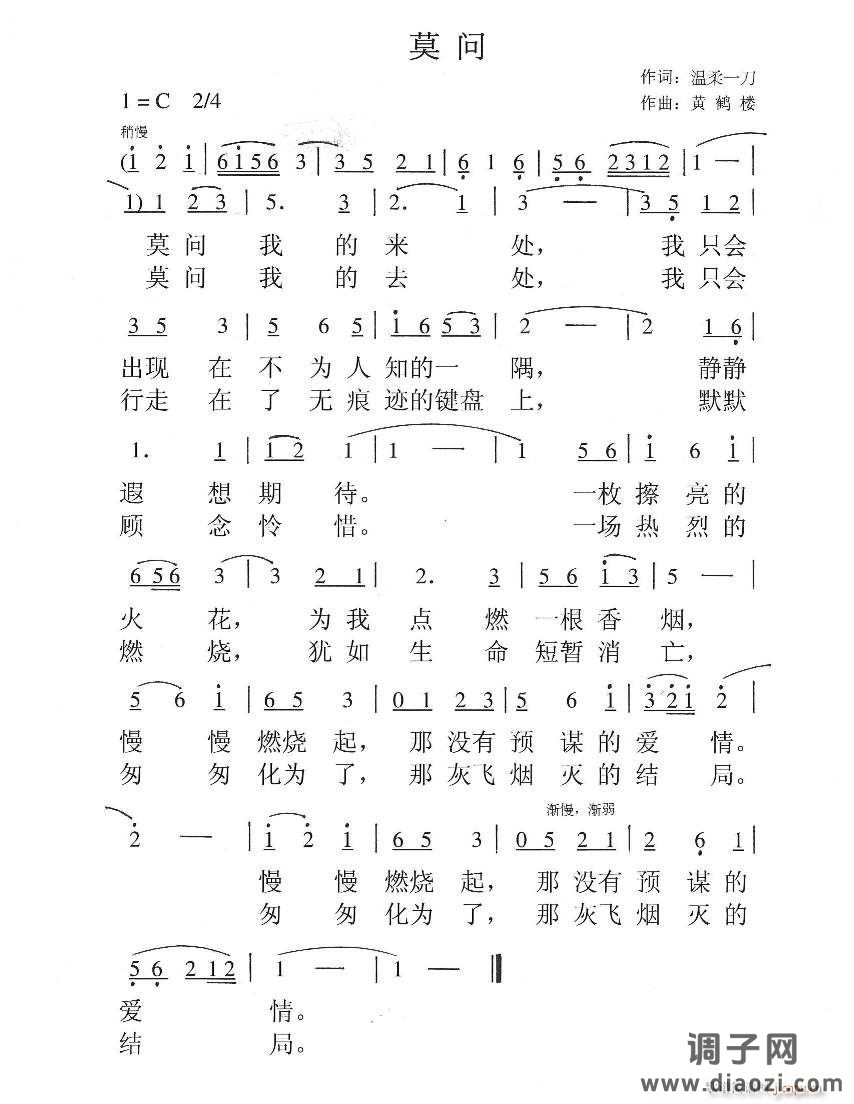 莫问
作词：温柔一刀
1＝C 2/4
作曲：黄鹤楼
稍慢
(1 2 1 | 6156 3 | 35 21 | 6 1 6 | 56 2312 | 1 — |
1) 1 23 | 5. 3 | 2. 1 | 3 — | 35 12 |
莫问我的来处，我只会
莫问我的去处，我只会
35 3 | 5 65 | 1653 | 2 — | 2 16 |
出现在不为人知的一隅，静静
行走在了无痕迹的键盘上，默默
1. 1 | 12 1 | 1 — | 1 56 | 1 6 1 |
遐想期待。一枚擦亮的
顾念怜惜。一场热烈的
656 3 | 3 21 | 2. 3 | 56 13 | 5 — |
火花，为我点燃一根香烟，
燃烧，犹如生命短暂消亡，
5 6 1 | 65 3 | 01 23 | 5 6 1 | 321 2 |
慢慢燃烧起，那没有预谋的爱情。
匆匆化为了，那灰飞烟灭的结局。
渐慢，渐弱
2 — | 1 2 1 | 65 3 | 05 21 | 2 6 1 |
慢慢燃烧起，那没有预谋的
匆匆化为了，那灰飞烟灭的
56 212 | 1 — | 1 — ‖
爱情。
结局。
调子网
www.diaozi.com